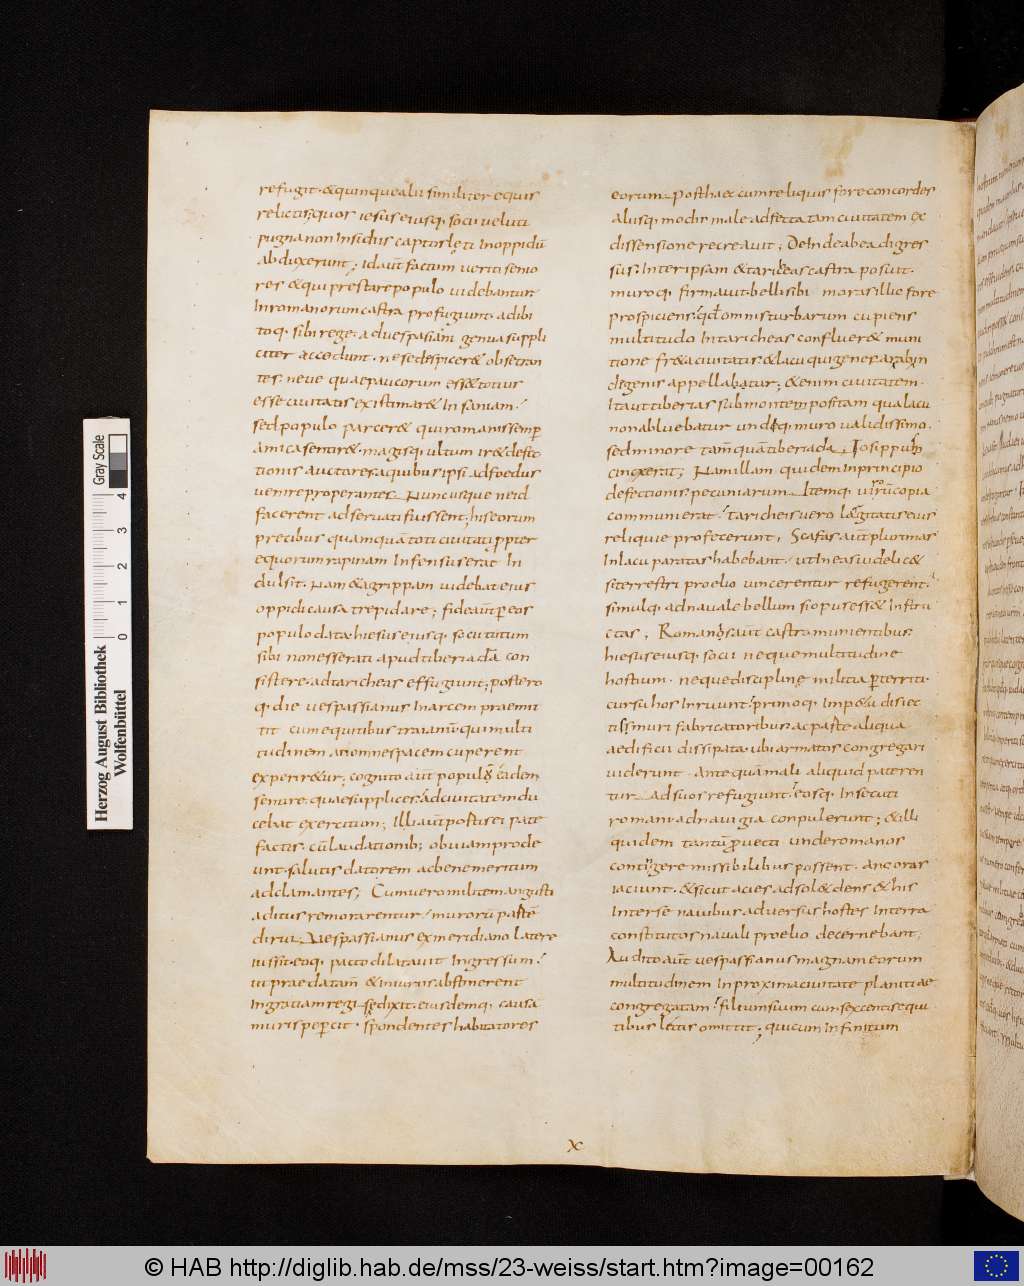 refugit · & quinque alii similiter equis
relictis · quos iesus eiusq· socii veluti
pugna non insidiis captos lęti in oppidū
abduxerunt; id aut̄ factum veriti senio
res & qui prestare populo videbantur
In romanorum castra profugiunt · adibi
toq· sibi rege · ad vespasianum genua suppli
citer accedunt · ne se despicer& obsecran
tes · neve quae paucorum ess& totius
esse civitatis existimar& Insaniam ·
sed populo parcer& qui romanis semp̄
amica sentir& · magisq· ultum ir& defec
tionis auctores a quibus ipsi ad foedus
venire properantes · Nunc usque ne id
facerent adservati fuissent · his eorum
precibus quamquā toti civitati ꝓpter
equorum rapinam Infensus erat In
dulsit · Nam & agrippam videbat eius
oppidi causa trepidare; fide aut̄ per eos
populo data · hiesus eiusq· socii tutum
sibi non esse rati apud tiberiadā con
sistere · ad taricheas effugiunt; postero
q· die vespassianus In arcem praemit
tit cum equitibus traianū · qui multi
tudinem an omnes pacem cuperent
experir&ur; cognito aut̄ populū eadem
sentire · quae supplices · ad civitatem du
cebat exercitum; Illi aut̄ portis ei pate
factis · cū laudationib; obviam prode
unt · salutis datorem ac bene meritum
adclamantes; Cum vero militem angusti
aditus remorarentur · murorū partē
dirui · Vespassianus ex meridiano latere
iussit · eoq· pacto dilatavit Ingressum ·
ut praeda tam̄ & iniuriis abstinerent
In gratiam regis edixit · eiusdemq· causa
muris pepercit · spondentes habitatores
eorum · post haec cum reliquis fore concordes
aliisq· modis male adfectam civitatem ex
dissensione recreavit; Deinde ab ea digres
sus · Inter ipsam & taricheas castra posuit ·
muroq· firmavit · belli sibi moras illic fore
prospiciens · qd̄ omnis turbarum cupiens
multitudo In taricheas confluer& muni
tione fr&a civitatis & lacu qui genesar ab in
digenis appellabatur; &enim civitatem ·
Ita ut tiberias sub montem positam qua lacu
non abluebatur undiq· muro validissimo ·
sed minore tam̄ quā tiberiada Iosippus
cinxerat; Nam illam quidem In principio
defectionis pecuniarum · Itemq· virorū copia
communierat · taricheis vero largitatis eius
reliquiae profecerunt; Scafas aut̄ plurimas
In lacu paratas habebant · ut In eas videlic&
si terrestri proelio vincerentur refugerent ·
simulq· ad navale bellum si opus ess& Instru
ctas; Romanos aut̄ castra munientibus
hiesus eiusq· socii neque multitudine
hostium · neque disciplinę militia perterriti ·
cursu hos Irruunt · primoq· Imp&u disiec
tis muri fabricatoribus · ac parte aliqua
aedificii dissipata · ubi armatos congregari
viderunt · ante quā mali aliquid pateren
tur · ad suos refugiunt · eosq· Insecuti
romani · ad navigia conpulerunt; & illi
quidem tantū ꝓvecti unde romanos
contingere missibilibus possent · ancoras
iaciunt · & sicut acies ad sol& densē & his
Inter se navibus adversus hostes In terra
constitutos navali proelio decernebant ·
Audito aut̄ vespassianus magnam eorum
multitudinem In proxima civitate planitiae
congregatam · filium suum cum sexcentis equi
tibus lectis omittit; qui cum Infinitum
x
Herzog August Bibliothek
Wolfenbüttel
Gray Scale
0 1 2 3 4
© HAB http://diglib.hab.de/mss/23-weiss/start.htm?image=00162